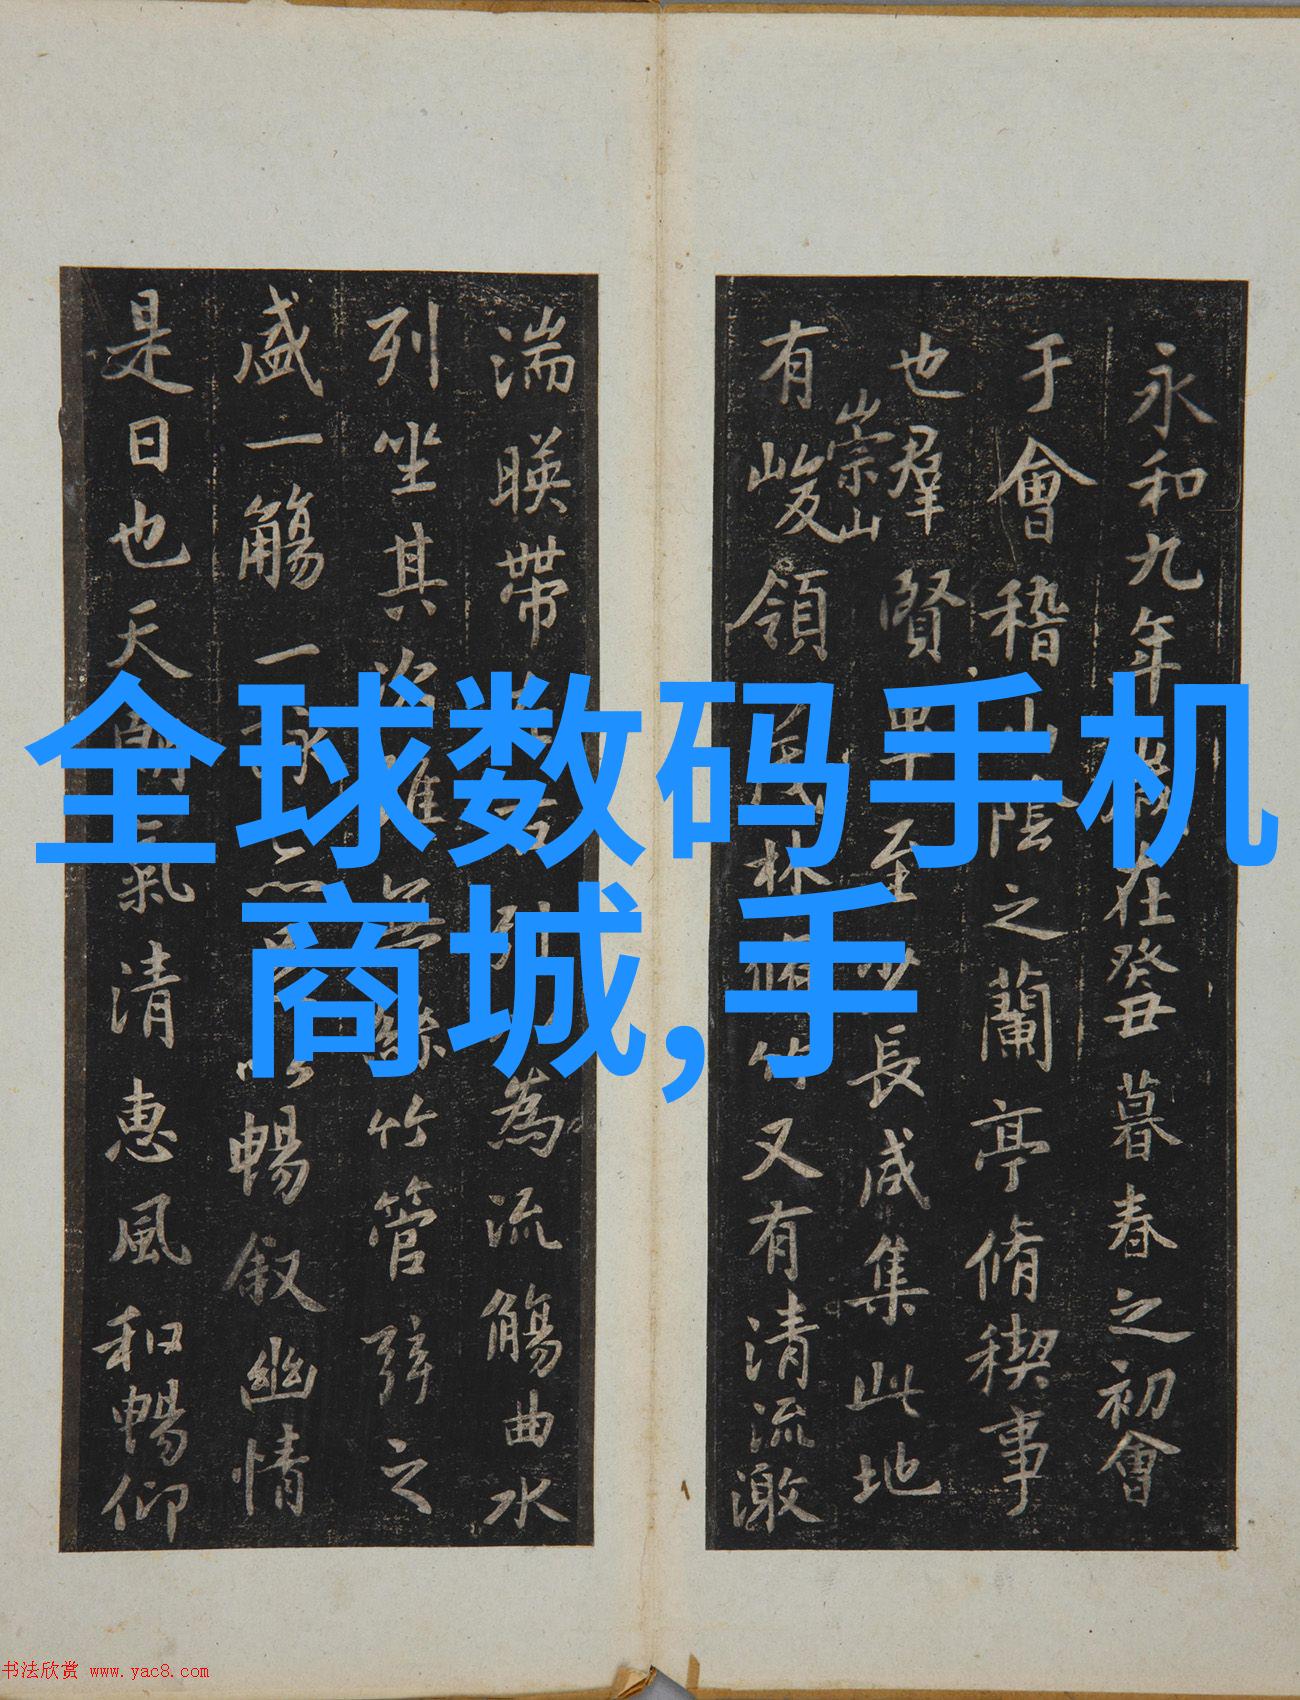 全球数码手机
商城,手
永和九年歲在癸丑暮春之初會
于會稽山陰之蘭亭脩稧事
也羣賢畢至少長咸集此地
有崇山峻領茂林脩竹又有清流激
湍暎帶左右引為流觴曲水
列坐其次雖無絲竹管弦之
盛一觴一詠暢叙幽情
是日也天朗氣清惠風和暢仰
书法欣赏 www.yac8.com